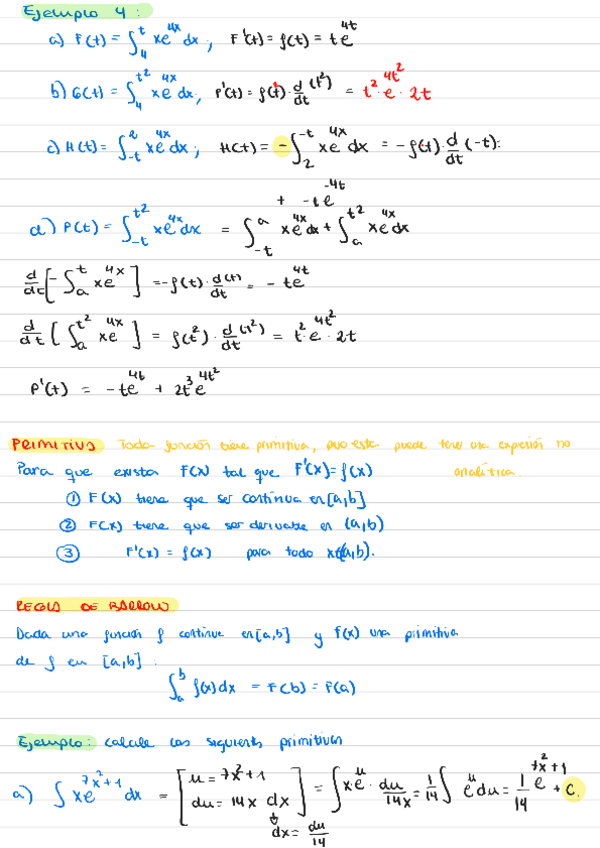 Ejemplo 4:
a) F(t) = ∫₄ᵗ xe^{4x} dx ; F'(t) = f(t) = te^{4t}
b) G(t) = ∫₄^{t²} xe^{4x} dx, P'(t) = f(t) · d/dt (t²) = t² · e^{4t²} · 2t
c) H(t) = ∫_{-t}^{2} xe^{4x} dx ; H(t) = - ∫₂^{-t} xe^{4x} dx = - f(t) · d/dt (-t):
+ -te^{-4t}
d) P(t) = ∫_{-t}^{t²} xe^{4x} dx = ∫_{-t}^{a} xe^{4x} dx + ∫ₐ^{t²} xe^{4x} dx
d/dt [- ∫ₐᵗ xe^{4x}] = - f(t) · d(t)/dt = - te^{4t}
d/dt [∫ₐ^{t²} xe^{4x}] = f(t²) · d(t²)/dt = t² · e^{4t²} · 2t
P'(t) = -te^{4t} + 2t³e^{4t²}
PRIMITIVAS Toda función tiene primitiva, pero esta puede tener una expresión no
Para que exista F(x) tal que F'(x) = f(x) analítica.
① F(x) tiene que ser continua en [a,b]
② F(x) tiene que ser derivable en (a,b)
③ F'(x) = f(x) para todo x∈(a,b).
REGLA DE BARROW
Dada una función f continua en [a,b] y F(x) una primitiva
de f en [a,b] :
∫ₐᵇ f(x) dx = F(b) = F(a)
Ejemplo: calcule las siguientes primitivas
a) ∫ xe^{7x²+1} dx = [u = 7x²+1 du = 14x dx dx = du/14] = ∫ xe^u · du/14x = 1/14 ∫ e^u du = 1/14 e^{7x²+1} + C.